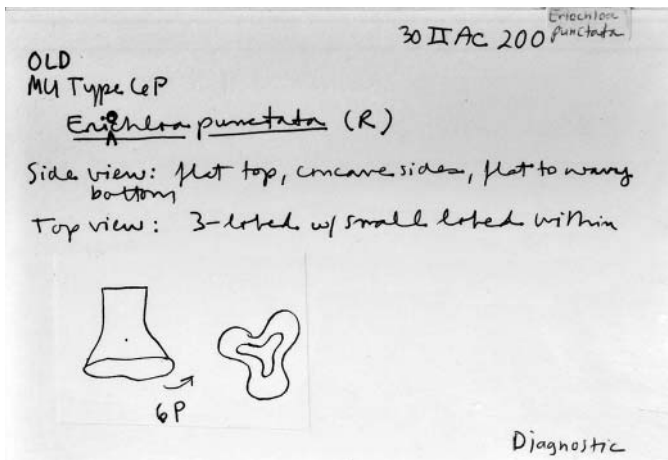 30 II Ac 200
Eriochloa
punctata
OLD
MU Type 6P
Eriochloa punctata (R)
Side view: flat top, concave sides, flat to wavy
bottom
Top view: 3-lobed w/ small lobed within
6P
Diagnostic